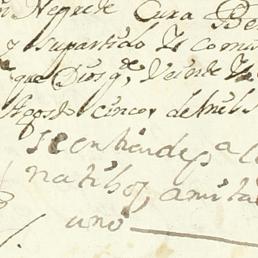 Negrete Cura Be
y supartido Te comis
que Dios g.e Veinte
Agosto cinco de mil s
Se entiende p.a l
natibos, amita
uno